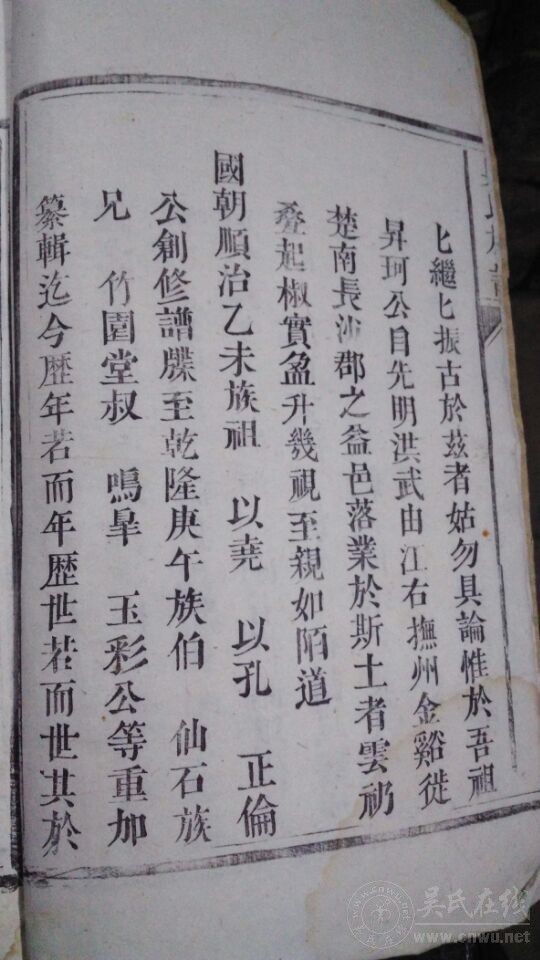 匕繼匕振古於茲者姑勿具論惟於吾祖
昇珂公自先明洪武由江右撫州金谿徙
楚南長沙郡之益邑落業於斯土者雲礽
叠起椒實盈升幾視至親如陌道
國朝順治乙未族祖 以堯 以孔 正倫
公創修譜牒至乾隆庚午族伯 仙石族
兄 竹園堂叔 鳴臯 玉彩公等重加
纂輯迄今歷年若而年歷世若而世其於
吳氏在线
www.cnwu.net